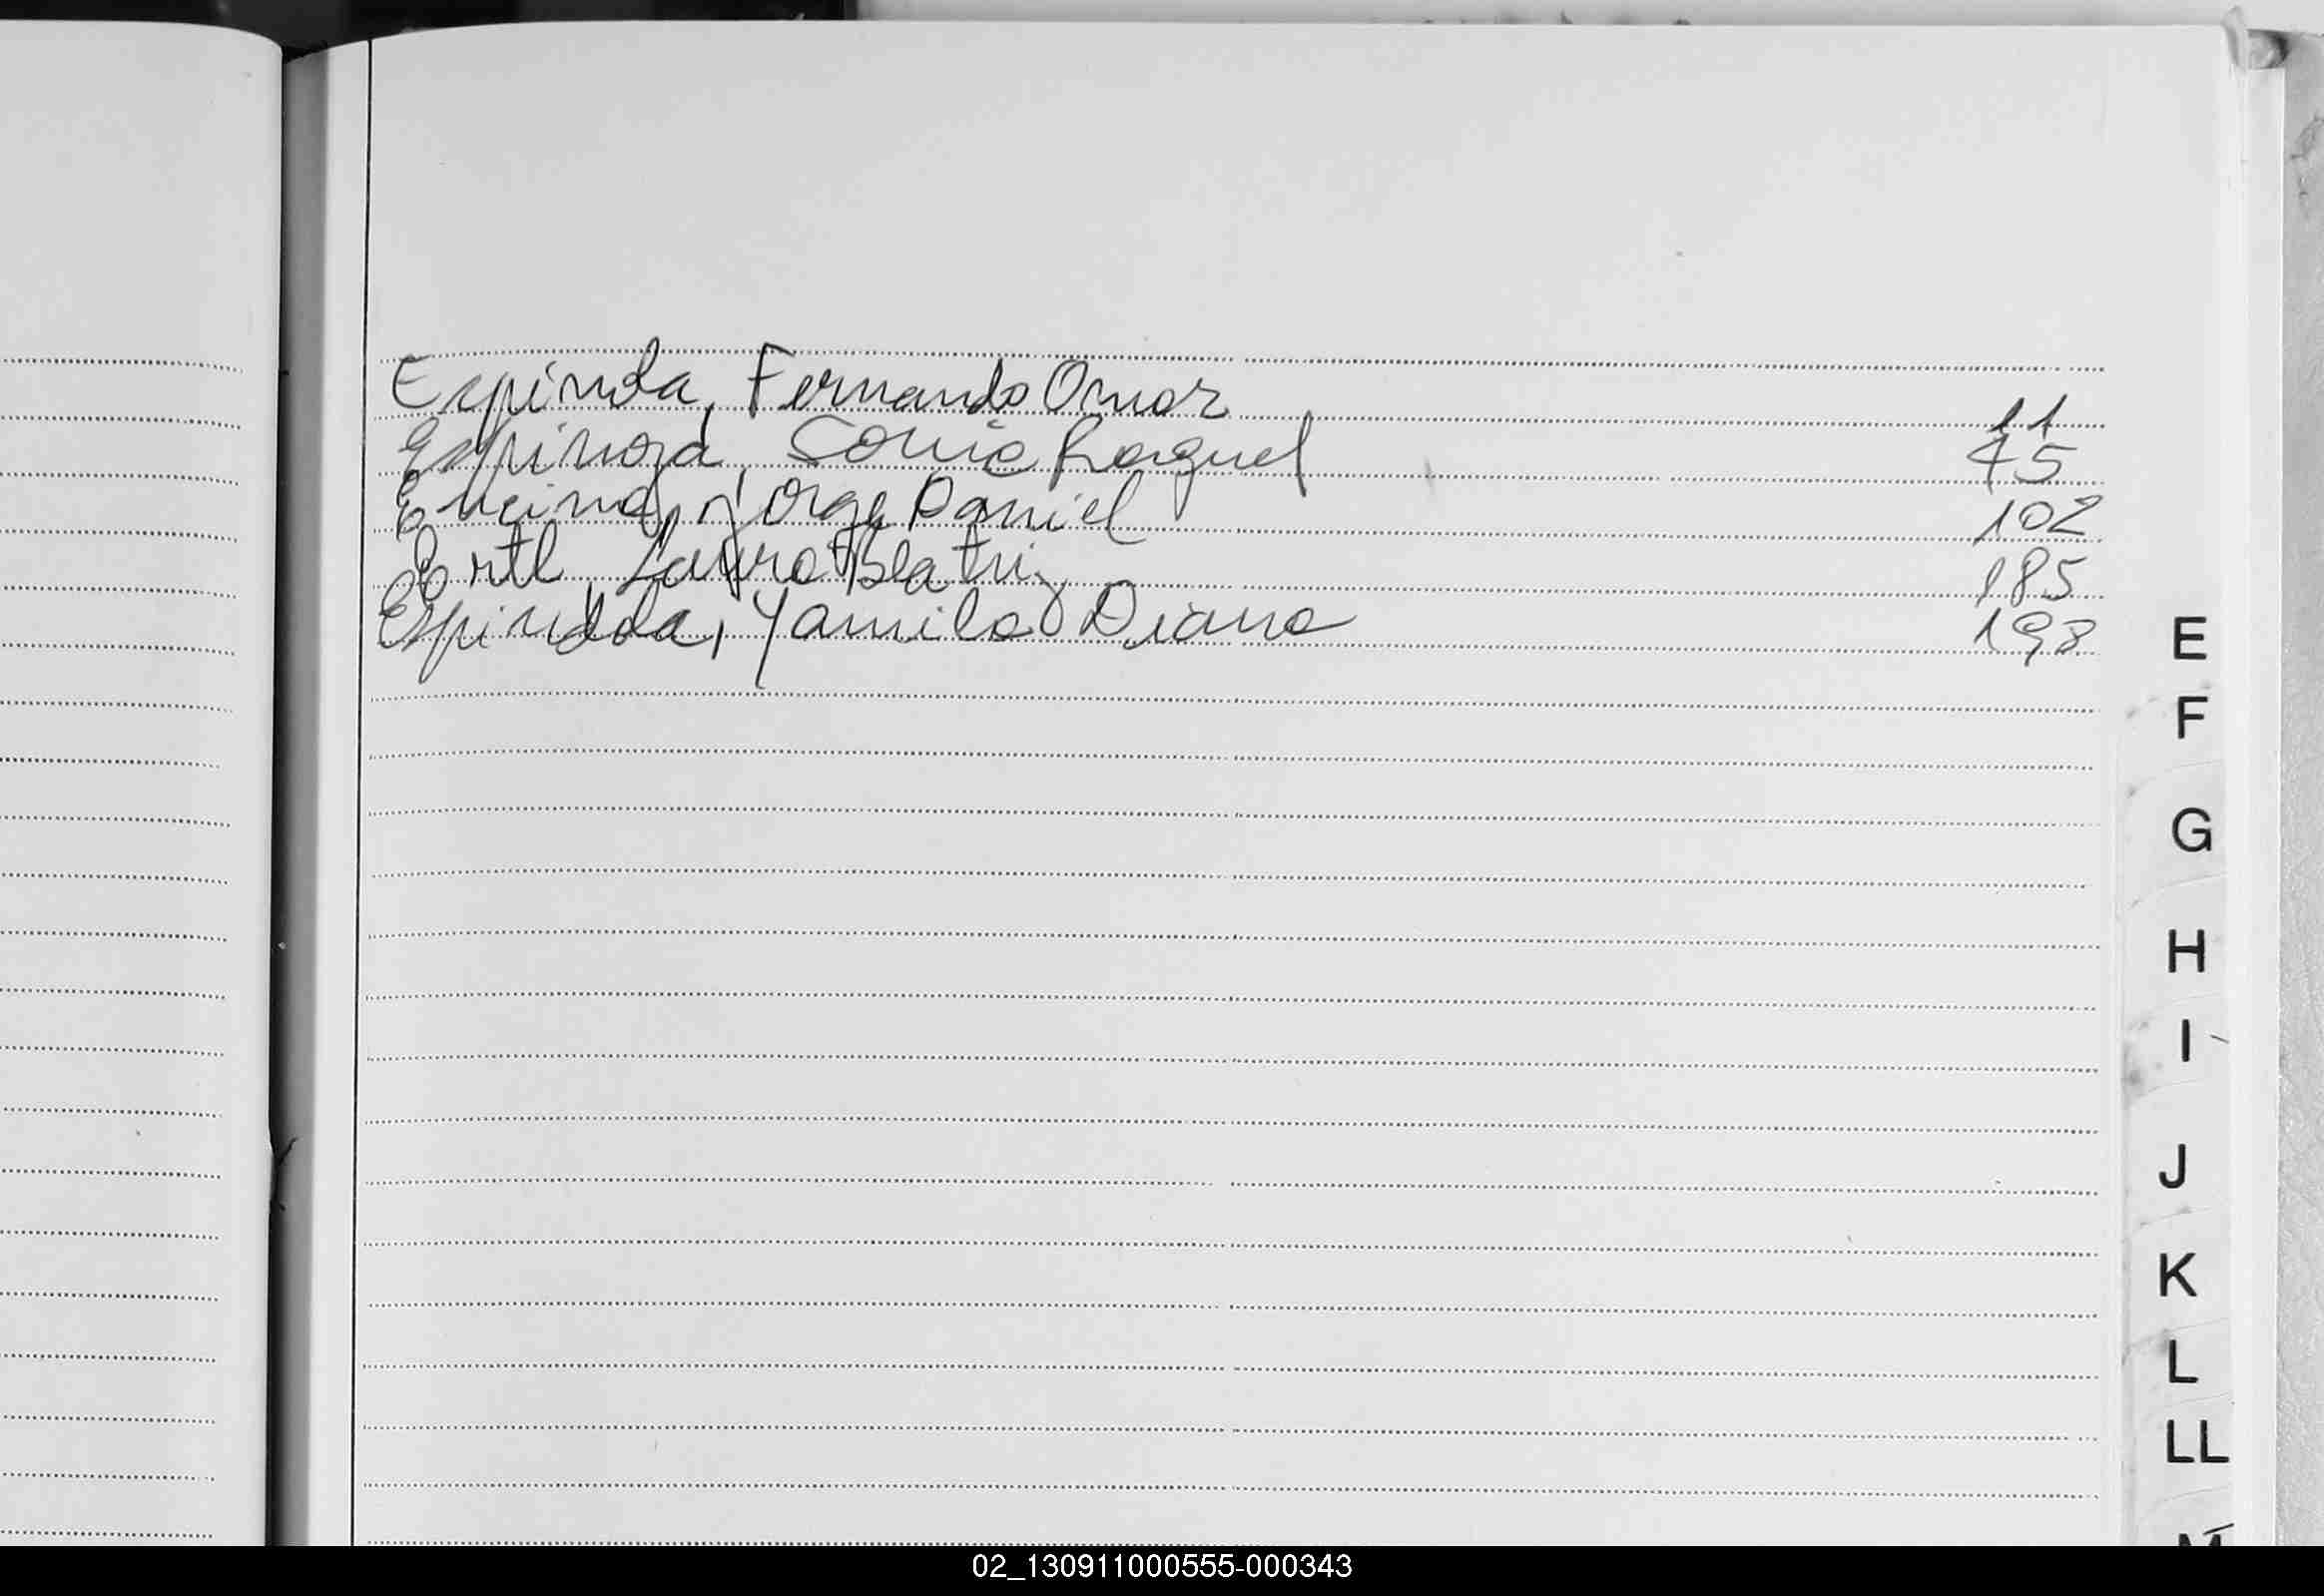 Espinola, Fernando Omar 11
Espinoza, Sonia Raquel 45
Encina, Jorge Daniel 102
Ertl, Laura Beatriz 185
Espindola, Yamila Diana 198
E
F
G
H
I
J
K
L
LL
M
02_130911000555-000343